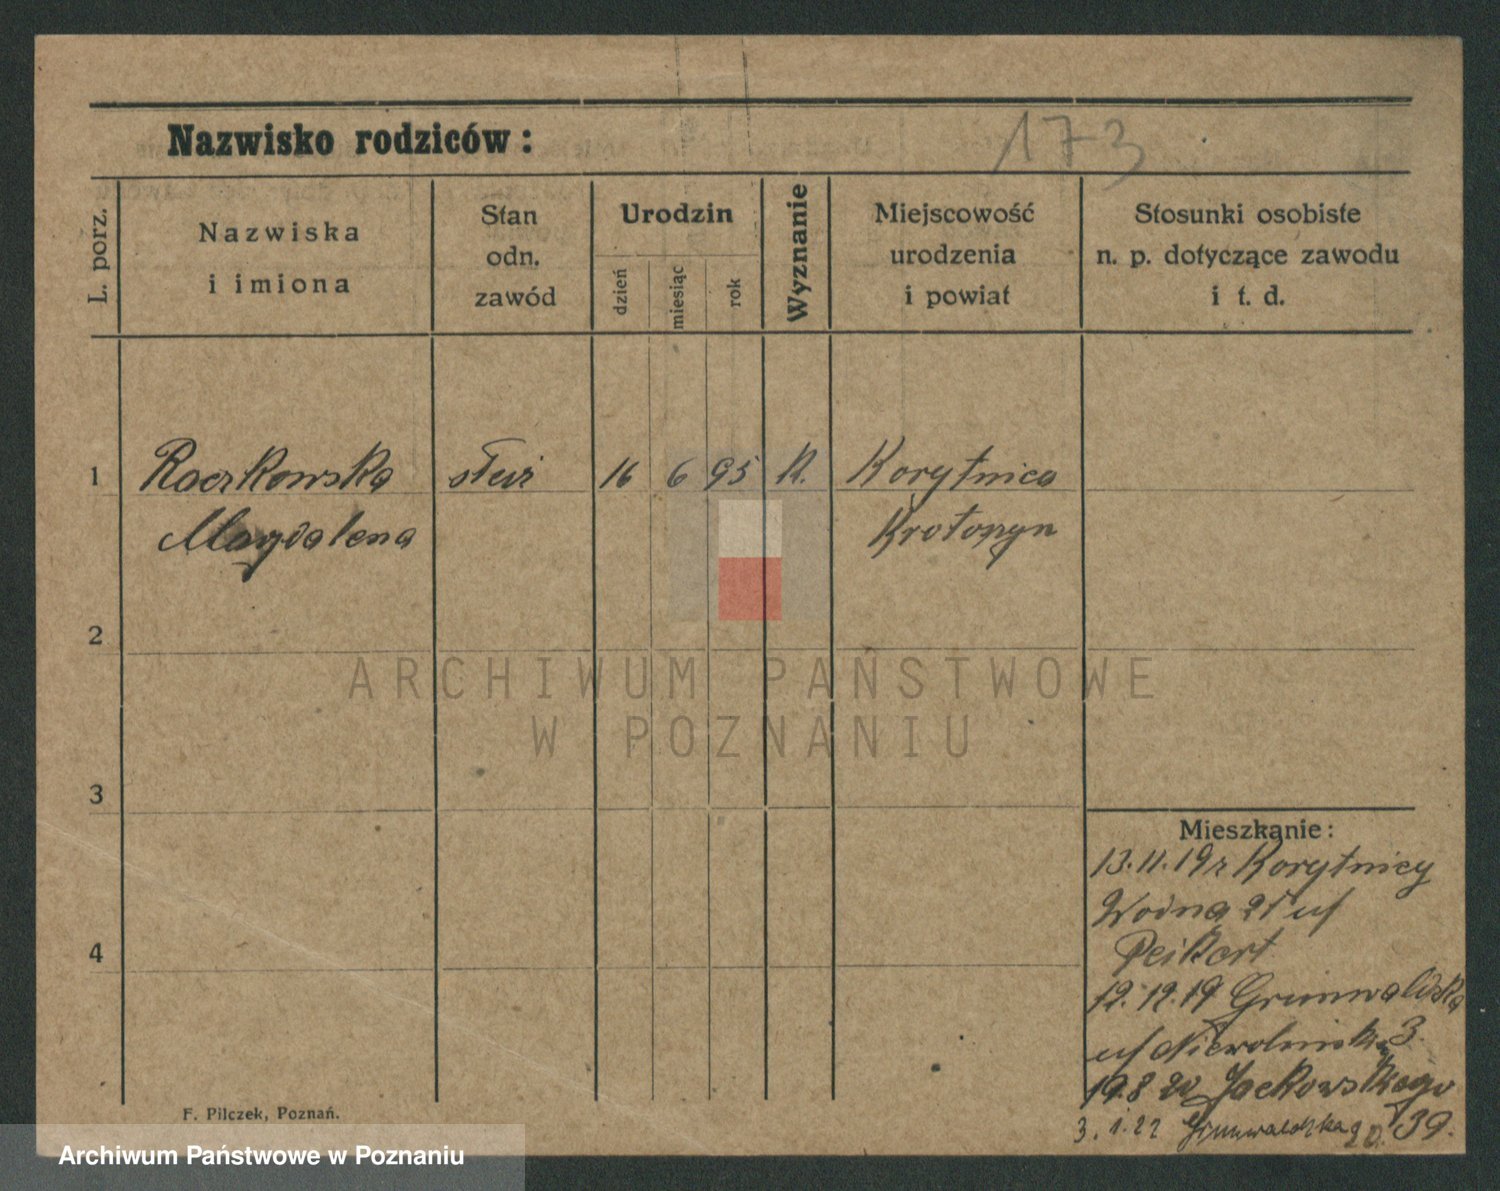 Nazwisko rodziców:
173
L. porz.
Nazwiska
i imiona
Stan
odn.
zawód
Urodzin
dzień
miesiąc
rok
Wyznanie
Miejscowość
urodzenia
i powiat
Stosunki osobiste
n. p. dotyczące zawodu
i t. d.
1 Raczkowska służ 16 6 95 K. Korytnica
Magdalena Krotoszyn
2
3
4
ARCHIWUM PAŃSTWOWE
W POZNANIU
Mieszkanie:
13.11.19 z Korytnicy
Wodna 21 u/
Peikert
12.12.19 Grunwaldzka
u/ 3.
19.8 20 Jackowskiego
39.
3.1.22 Grunwaldzka 20.
F. Pilczek, Poznań.
Archiwum Państwowe w Poznaniu